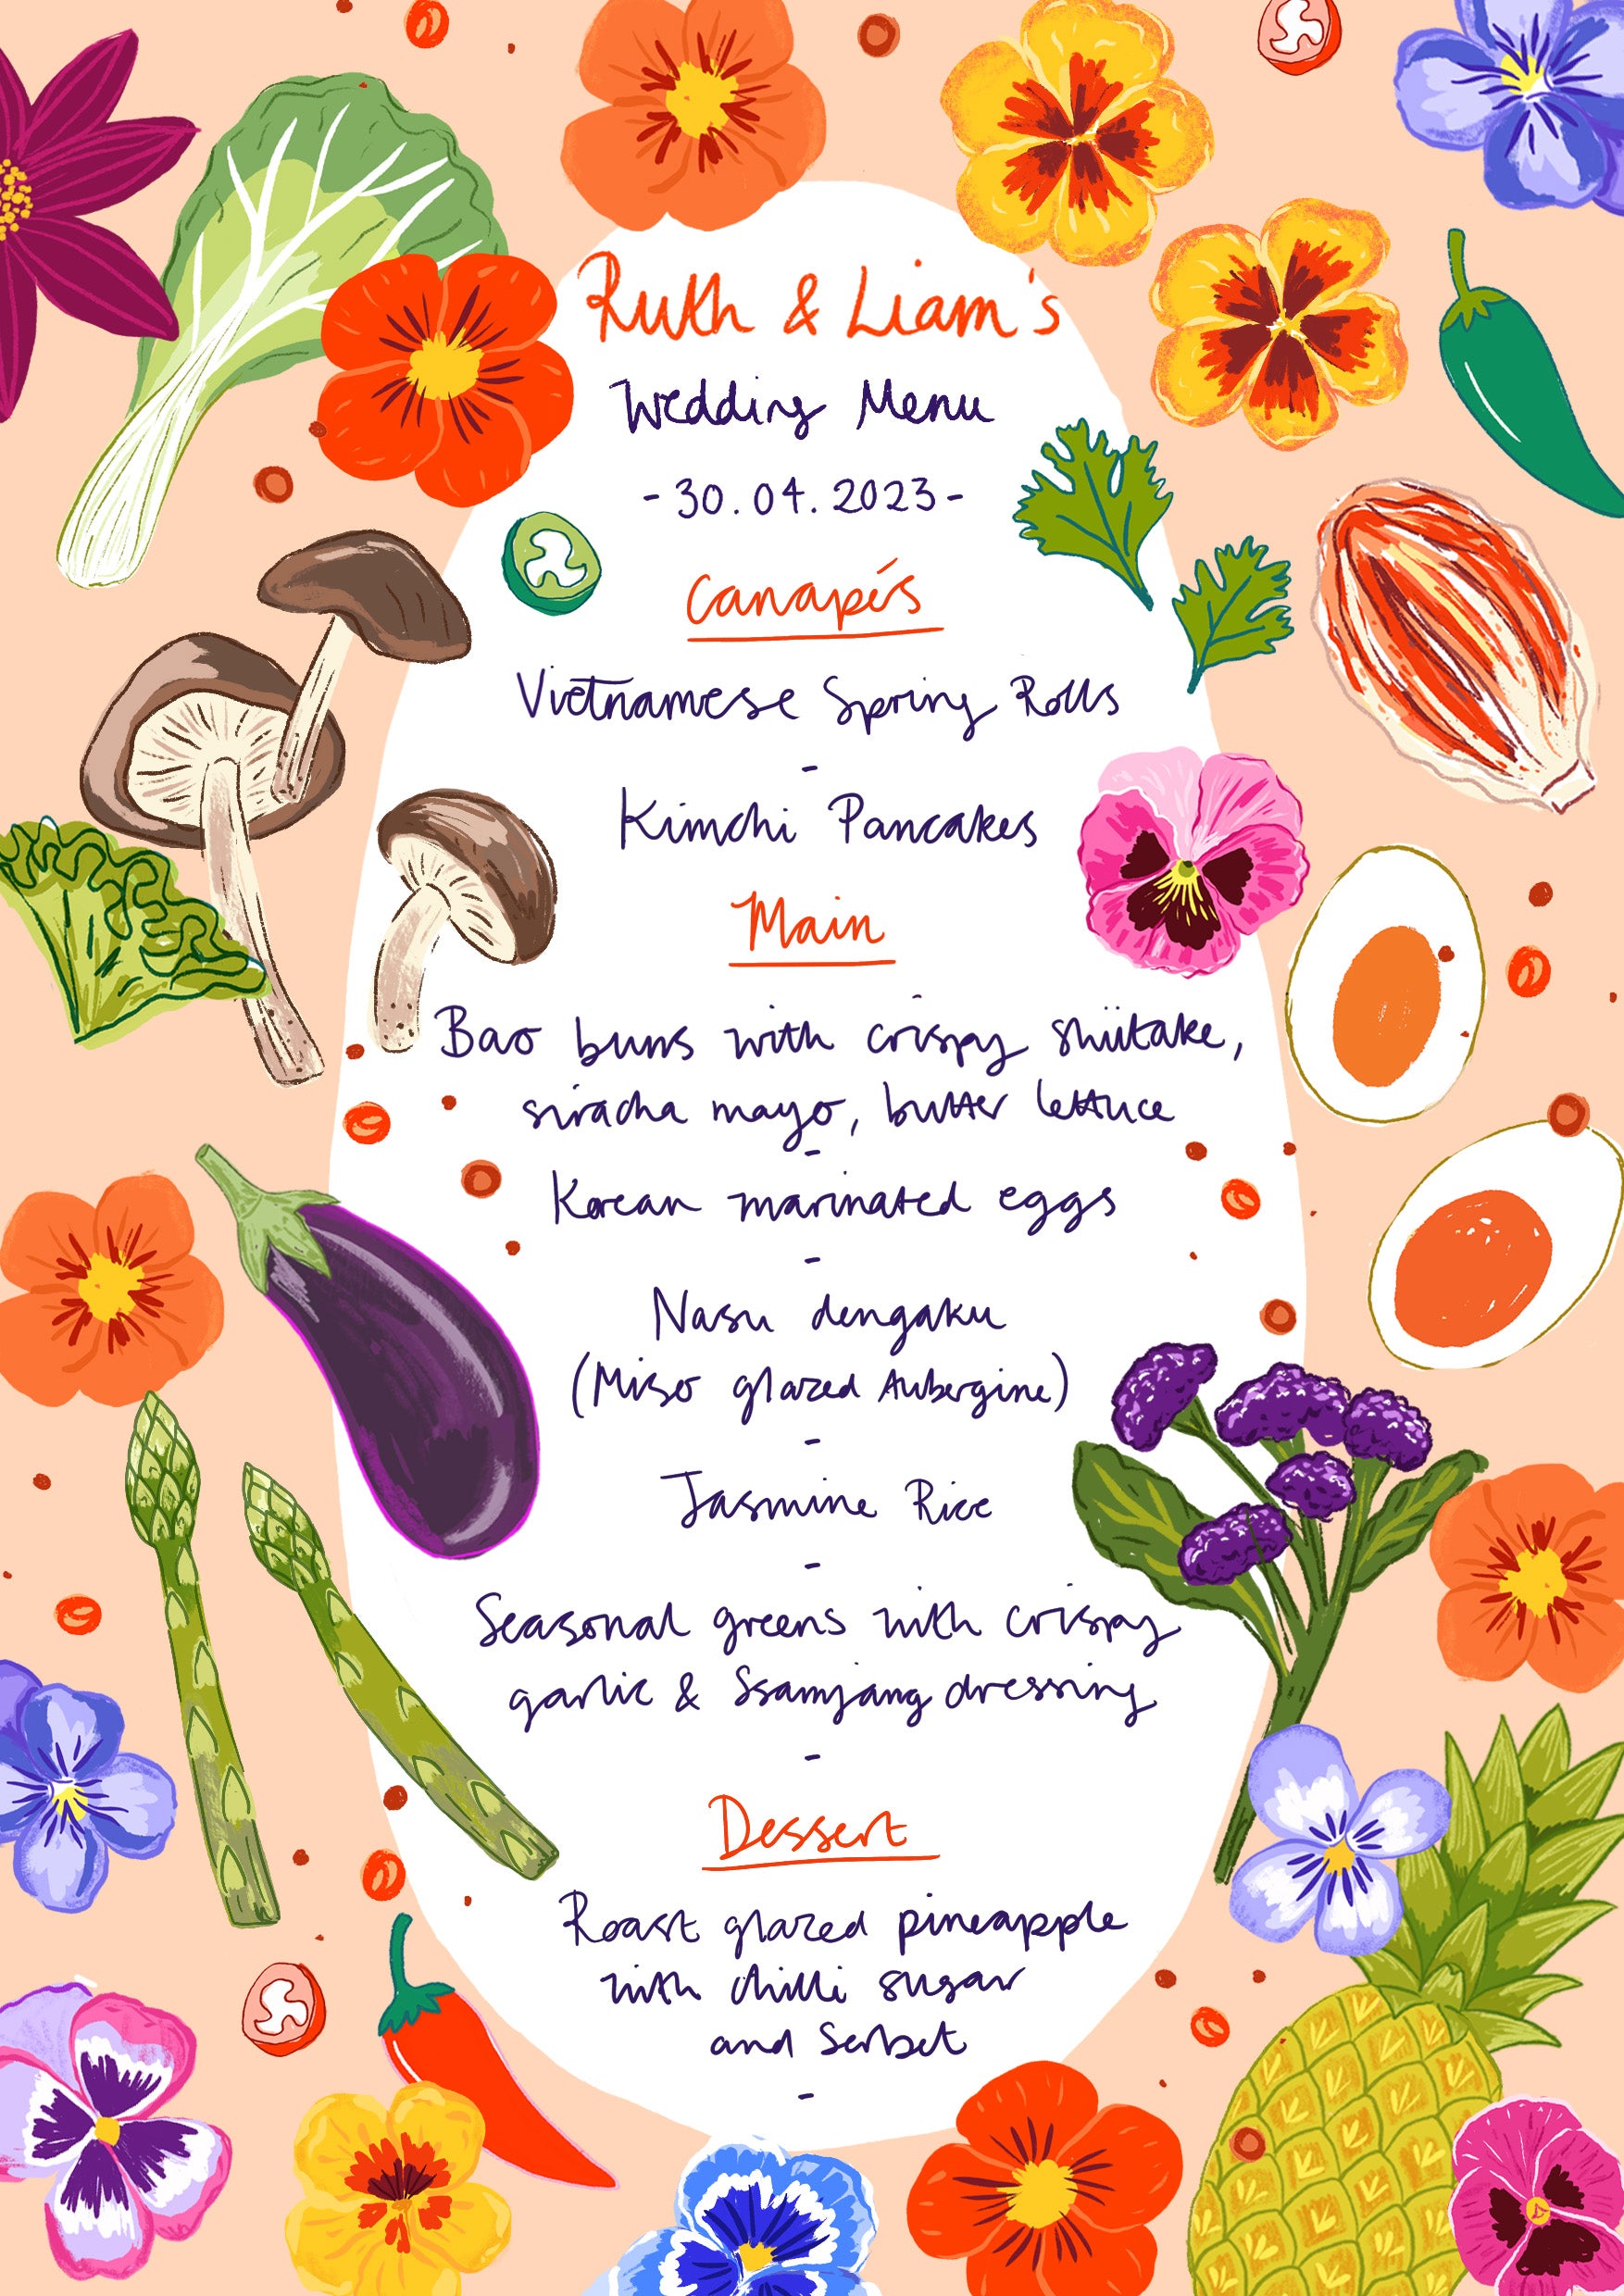 Ruth & Liam's
Wedding Menu
- 30.04.2023 -
Canapés
Vietnamese Spring Rolls
-
Kimchi Pancakes
Main
Bao buns with crispy shiitake,
siracha mayo, butter lettuce
-
Korean marinated eggs
-
Nasu dengaku
(Miso glazed Aubergine)
-
Jasmine Rice
-
Seasonal greens with crispy
garlic & Ssamjang dressing
-
Dessert
Roast glazed pineapple
with chilli sugar
and Serbet
-